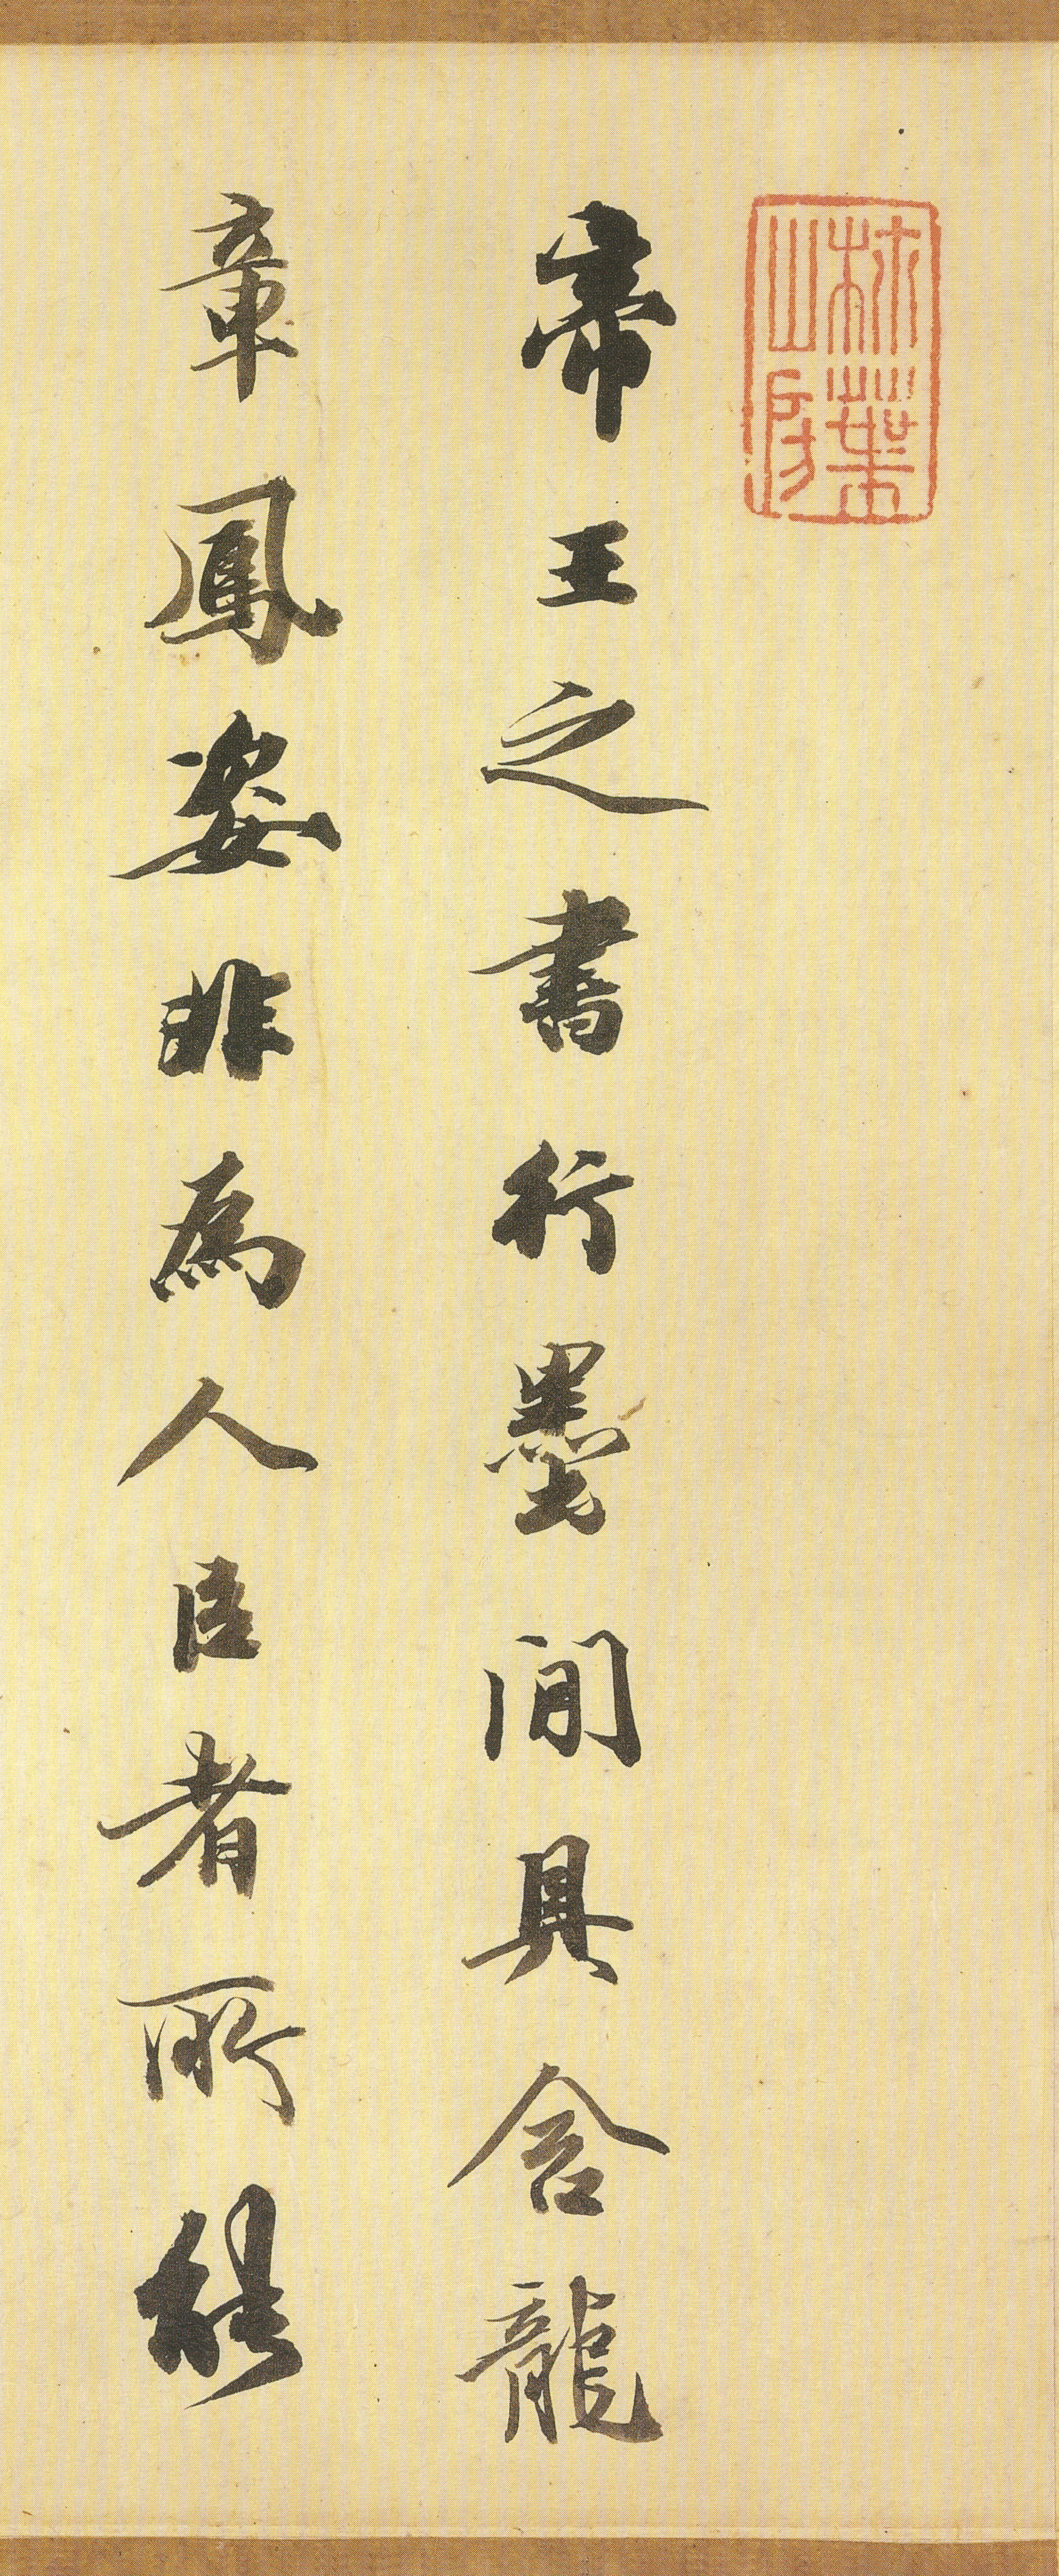 柿葉山房
帝王之書行墨間具含龍
章鳳姿非為人臣者所能